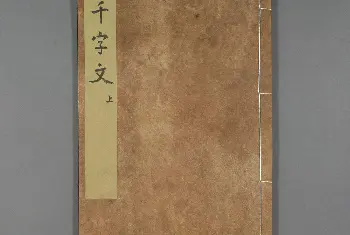 千字文 上